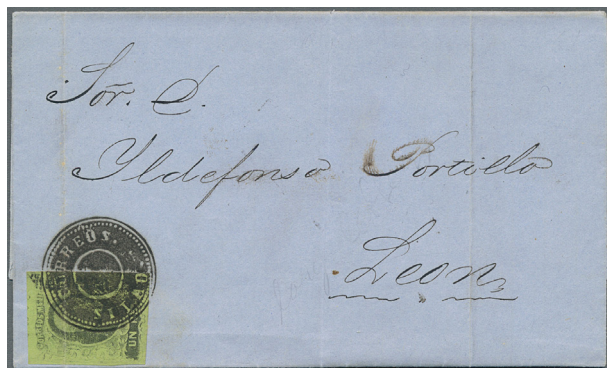 Sõr. D.
Yldefonso Portillo
Leon,
CORREOS.
SILAO
UN